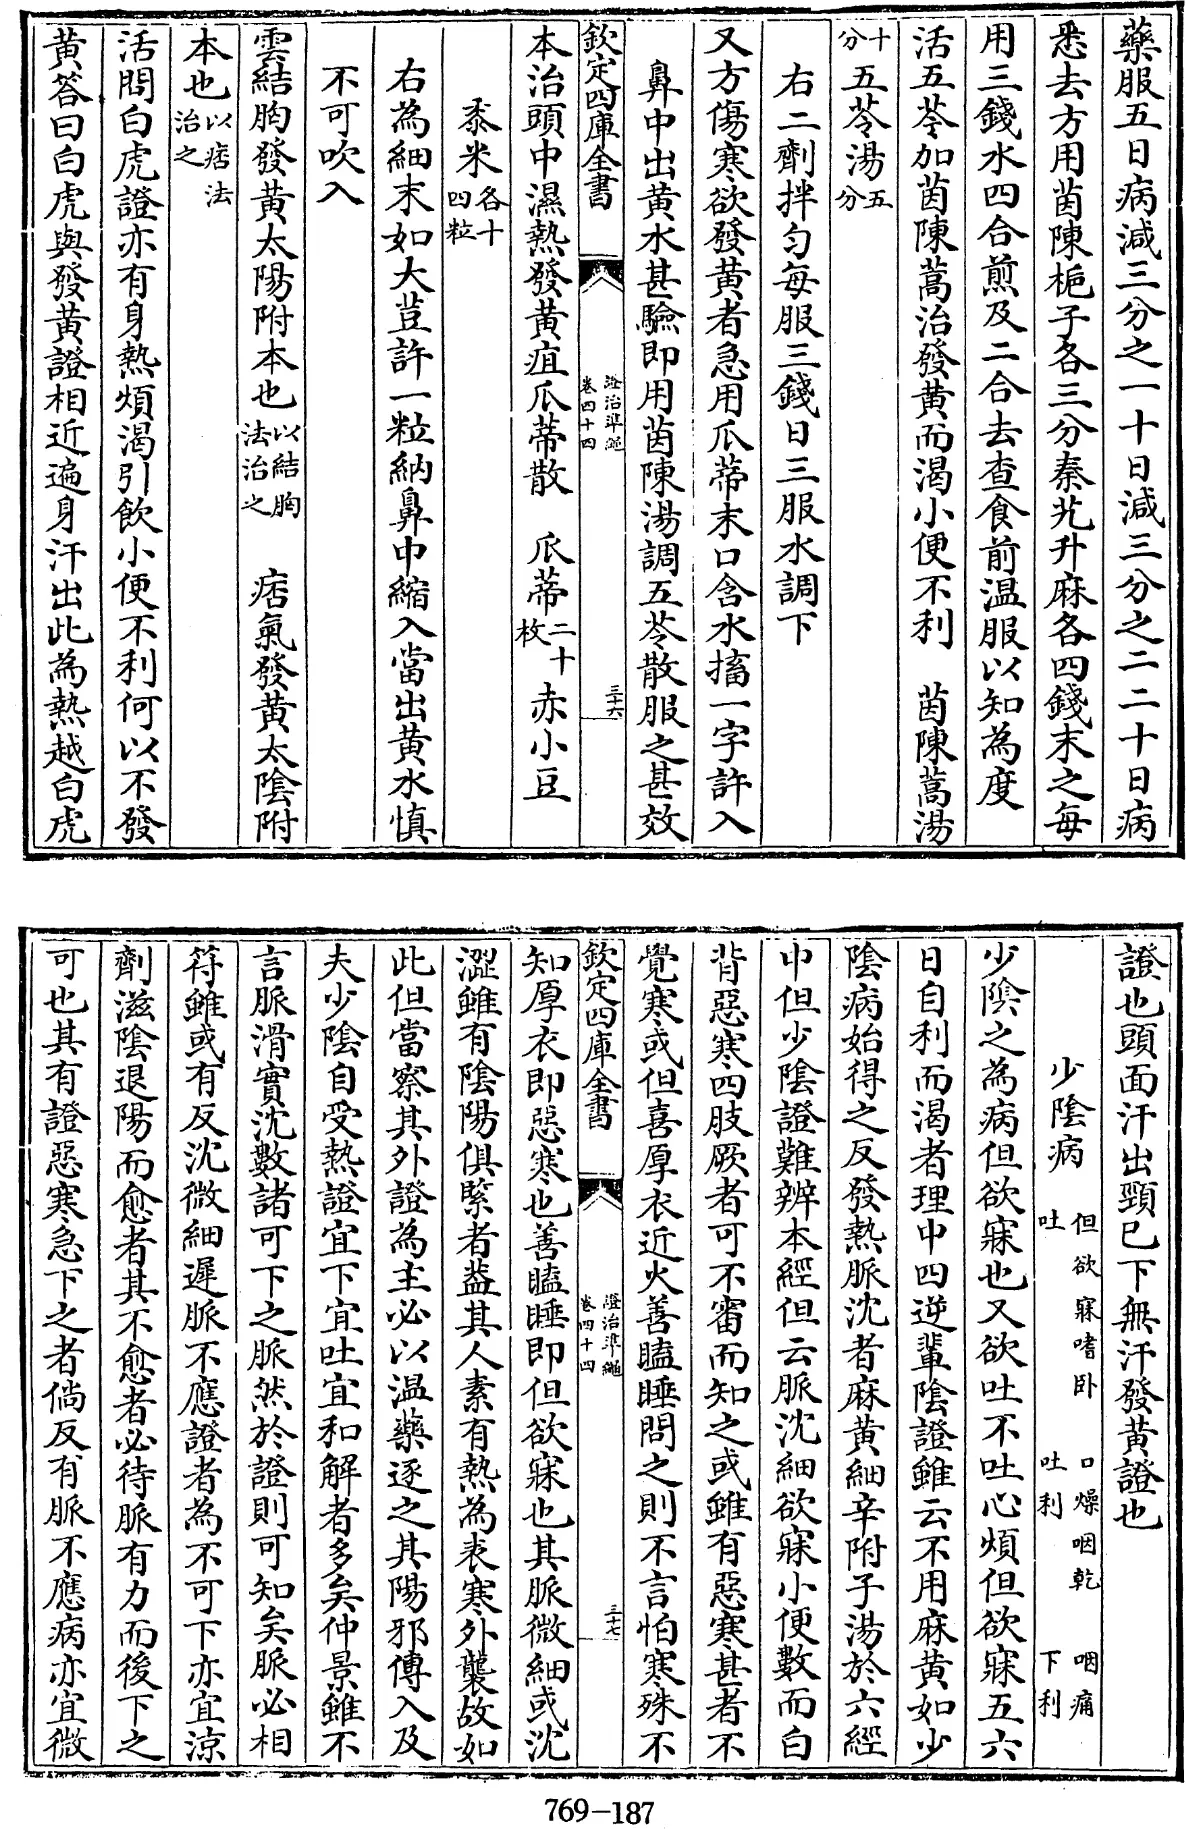 藥服五日病減三分之一十日減三分之二二十日病
悉去方用茵陳梔子各三分秦艽升麻各四錢末之每
用三錢水四合煎及二合去查食前温服以知為度
活五苓加茵陳蒿治發黄而渴小便不利　茵陳蒿湯
十分五苓湯五分
右二劑拌匀每服三錢日三服水調下
又方傷寒欲發黄者急用瓜蒂末口含水搐一字許入
鼻中出黄水甚驗即用茵陳湯調五苓散服之甚效
欽定四庫全書　證治準繩卷四十四　三十六
本治頭中濕熱發黄疸瓜蒂散　瓜蒂二十枚赤小豆
黍米各十四粒
右為細末如大荳許一粒納鼻中縮入當出黄水慎
不可吹入
雲結胸發黄太陽附本也以結胸法治之　痞氣發黄太陰附
本也以痞法治之
活問白虎證亦有身熱煩渴引飲小便不利何以不發
黄答曰白虎與發黄證相近遍身汗出此為熱越白虎
證也頭面汗出頸已下無汗發黄證也
少陰病　但欲寐嗜卧　口燥咽乾　咽痛　吐　吐利　下利
少陰之為病但欲寐也又欲吐不吐心煩但欲寐五六
日自利而渴者理中四逆輩陰證雖云不用麻黄如少
陰病始得之反發熱脈沈者麻黄細辛附子湯於六經
中但少陰證難辨本經但云脈沈細欲寐小便數而白
背惡寒四肢厥者可不審而知之或雖有惡寒甚者不
覺寒或但喜厚衣近火善瞌睡問之則不言怕寒殊不
欽定四庫全書　證治準繩卷四十四　三十七
知厚衣即惡寒也善瞌睡即但欲寐也其脈微細或沈
澀雖有陰陽俱緊者益其人素有熱為表寒外襲故如
此但當察其外證為主必以温藥逐之其陽邪傳入及
夫少陰自受熱證宜下宜吐宜和解者多矣仲景雖不
言脈滑實沈數諸可下之脈然於證則可知矣脈必相
符雖或有反沈微細遲脈不應證者為不可下亦宜涼
劑滋陰退陽而愈者其不愈者必待脈有力而後下之
可也其有證惡寒急下之者倘反有脈不應病亦宜微
769-187